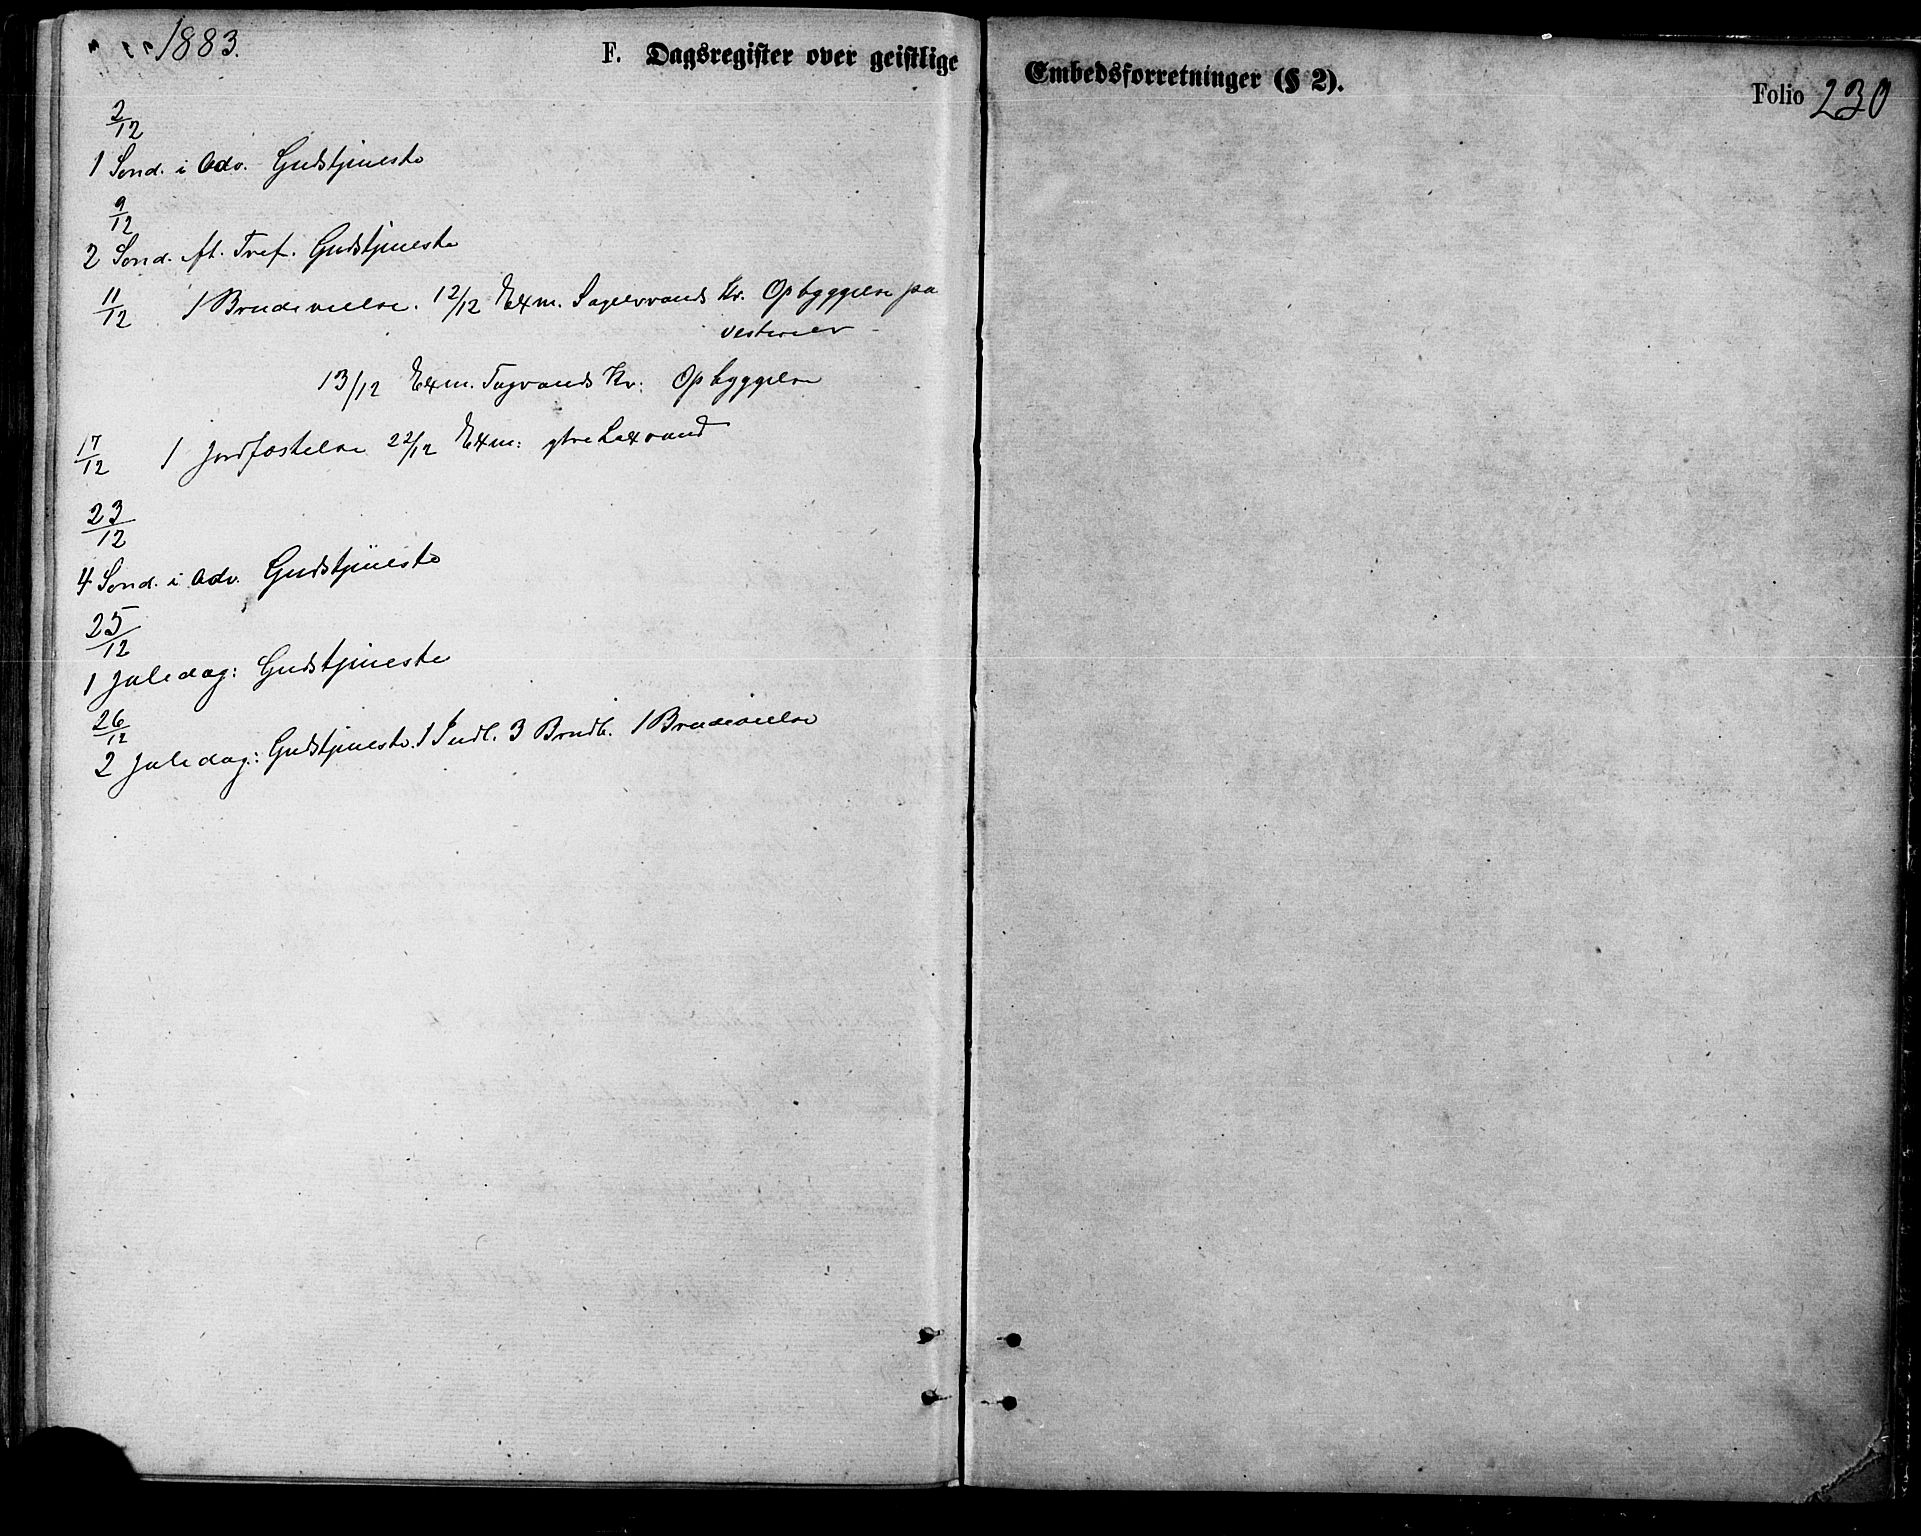 1883.
F. Dagsregister over geistlige Embedsforretninger (§ 2).
Folio 230
2/12
1 Sønd. i Adv. Gudstjeneste
9/12
2 Sønd. Gudstjeneste
11/12 1 Brudevielse. 12/12 Exm. Sagelvvands Kr. Opbyggelse på
13/12 Exm. Tagvands Kr: Opbyggelse
17/12 1 Jordfæstelse 22/12 Exm: ytre Laxvand
23/12
4 Sønd. i Adv. Gudstjeneste
25/12
1 Juledag: Gudstjeneste
26/12
2 Juledag: Gudstjeneste. 1 Indl. 3 Brudevielse